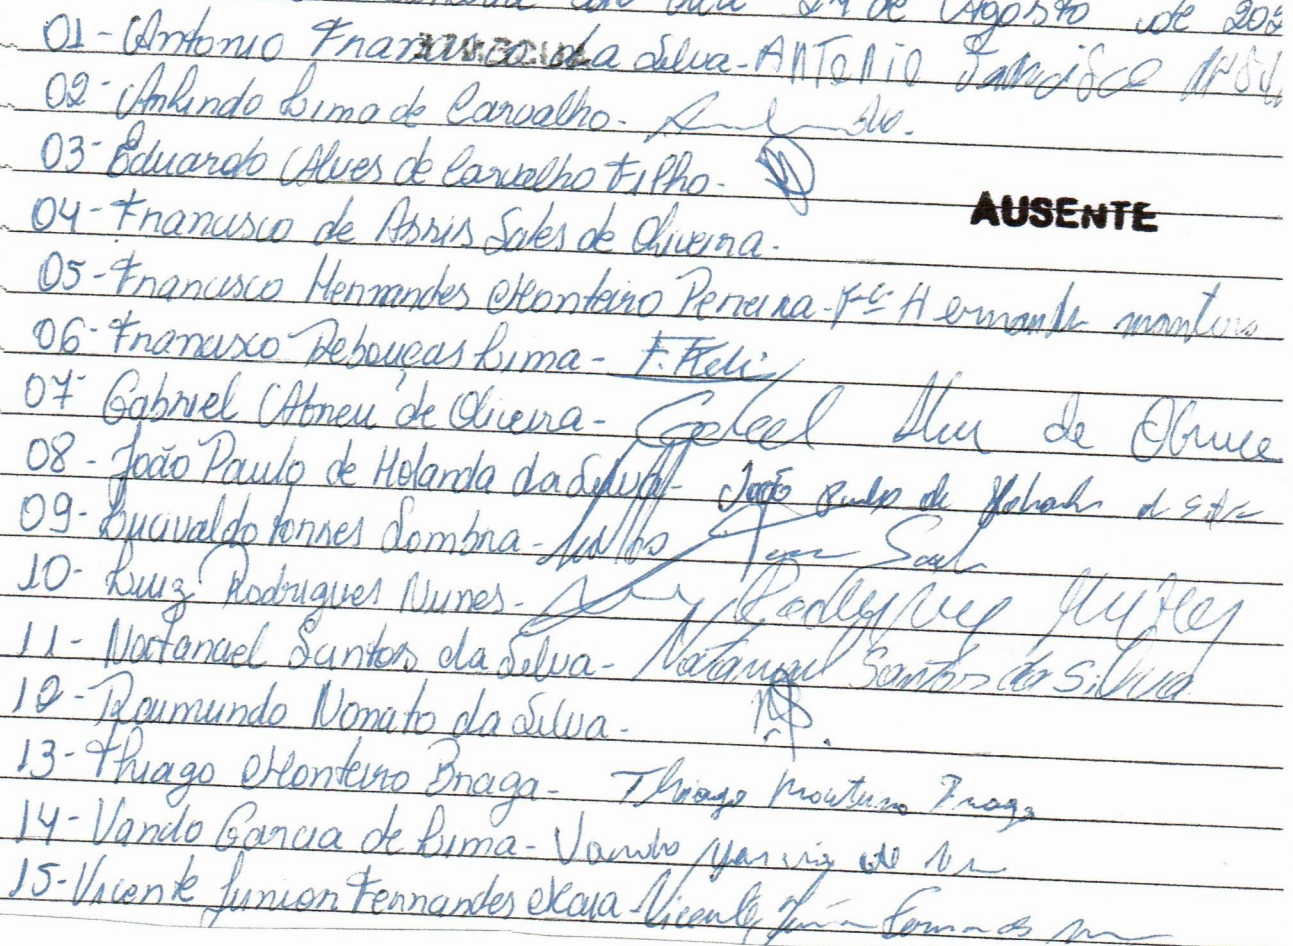 de Agosto de 202
01- Antonio Francisco da Silva - ANTONIO Francisco
02- Arlindo Lima de Carvalho -
03- Eduardo Alves de Carvalho Filho -
04- Francisco de Assis Sales de Oliveira - AUSENTE
05- Francisco Hermandes Monteiro Pereira - Fco Hermandes monteiro
06- Francisco Rebouças Lima - F. Reb
07- Gabriel Abreu de Oliveira - Gabriel Abreu de Olivei
08- João Paulo de Holanda da Silva - João Paulo de Holanda da Silva
09- Lucivaldo Torres Sombra -
10- Luiz Rodrigues Nunes - Luiz Rodrigues Nunes
11- Natanael Santos da Silva - Natanael Santos da Silva
12- Raimundo Nonato da Silva -
13- Thiago Monteiro Braga - Thiago Monteiro Braga
14- Vando Garcia de Lima - Vando Garcia de
15- Vicente Junior Fernandes Maia - Vicente Júnior Fernandes